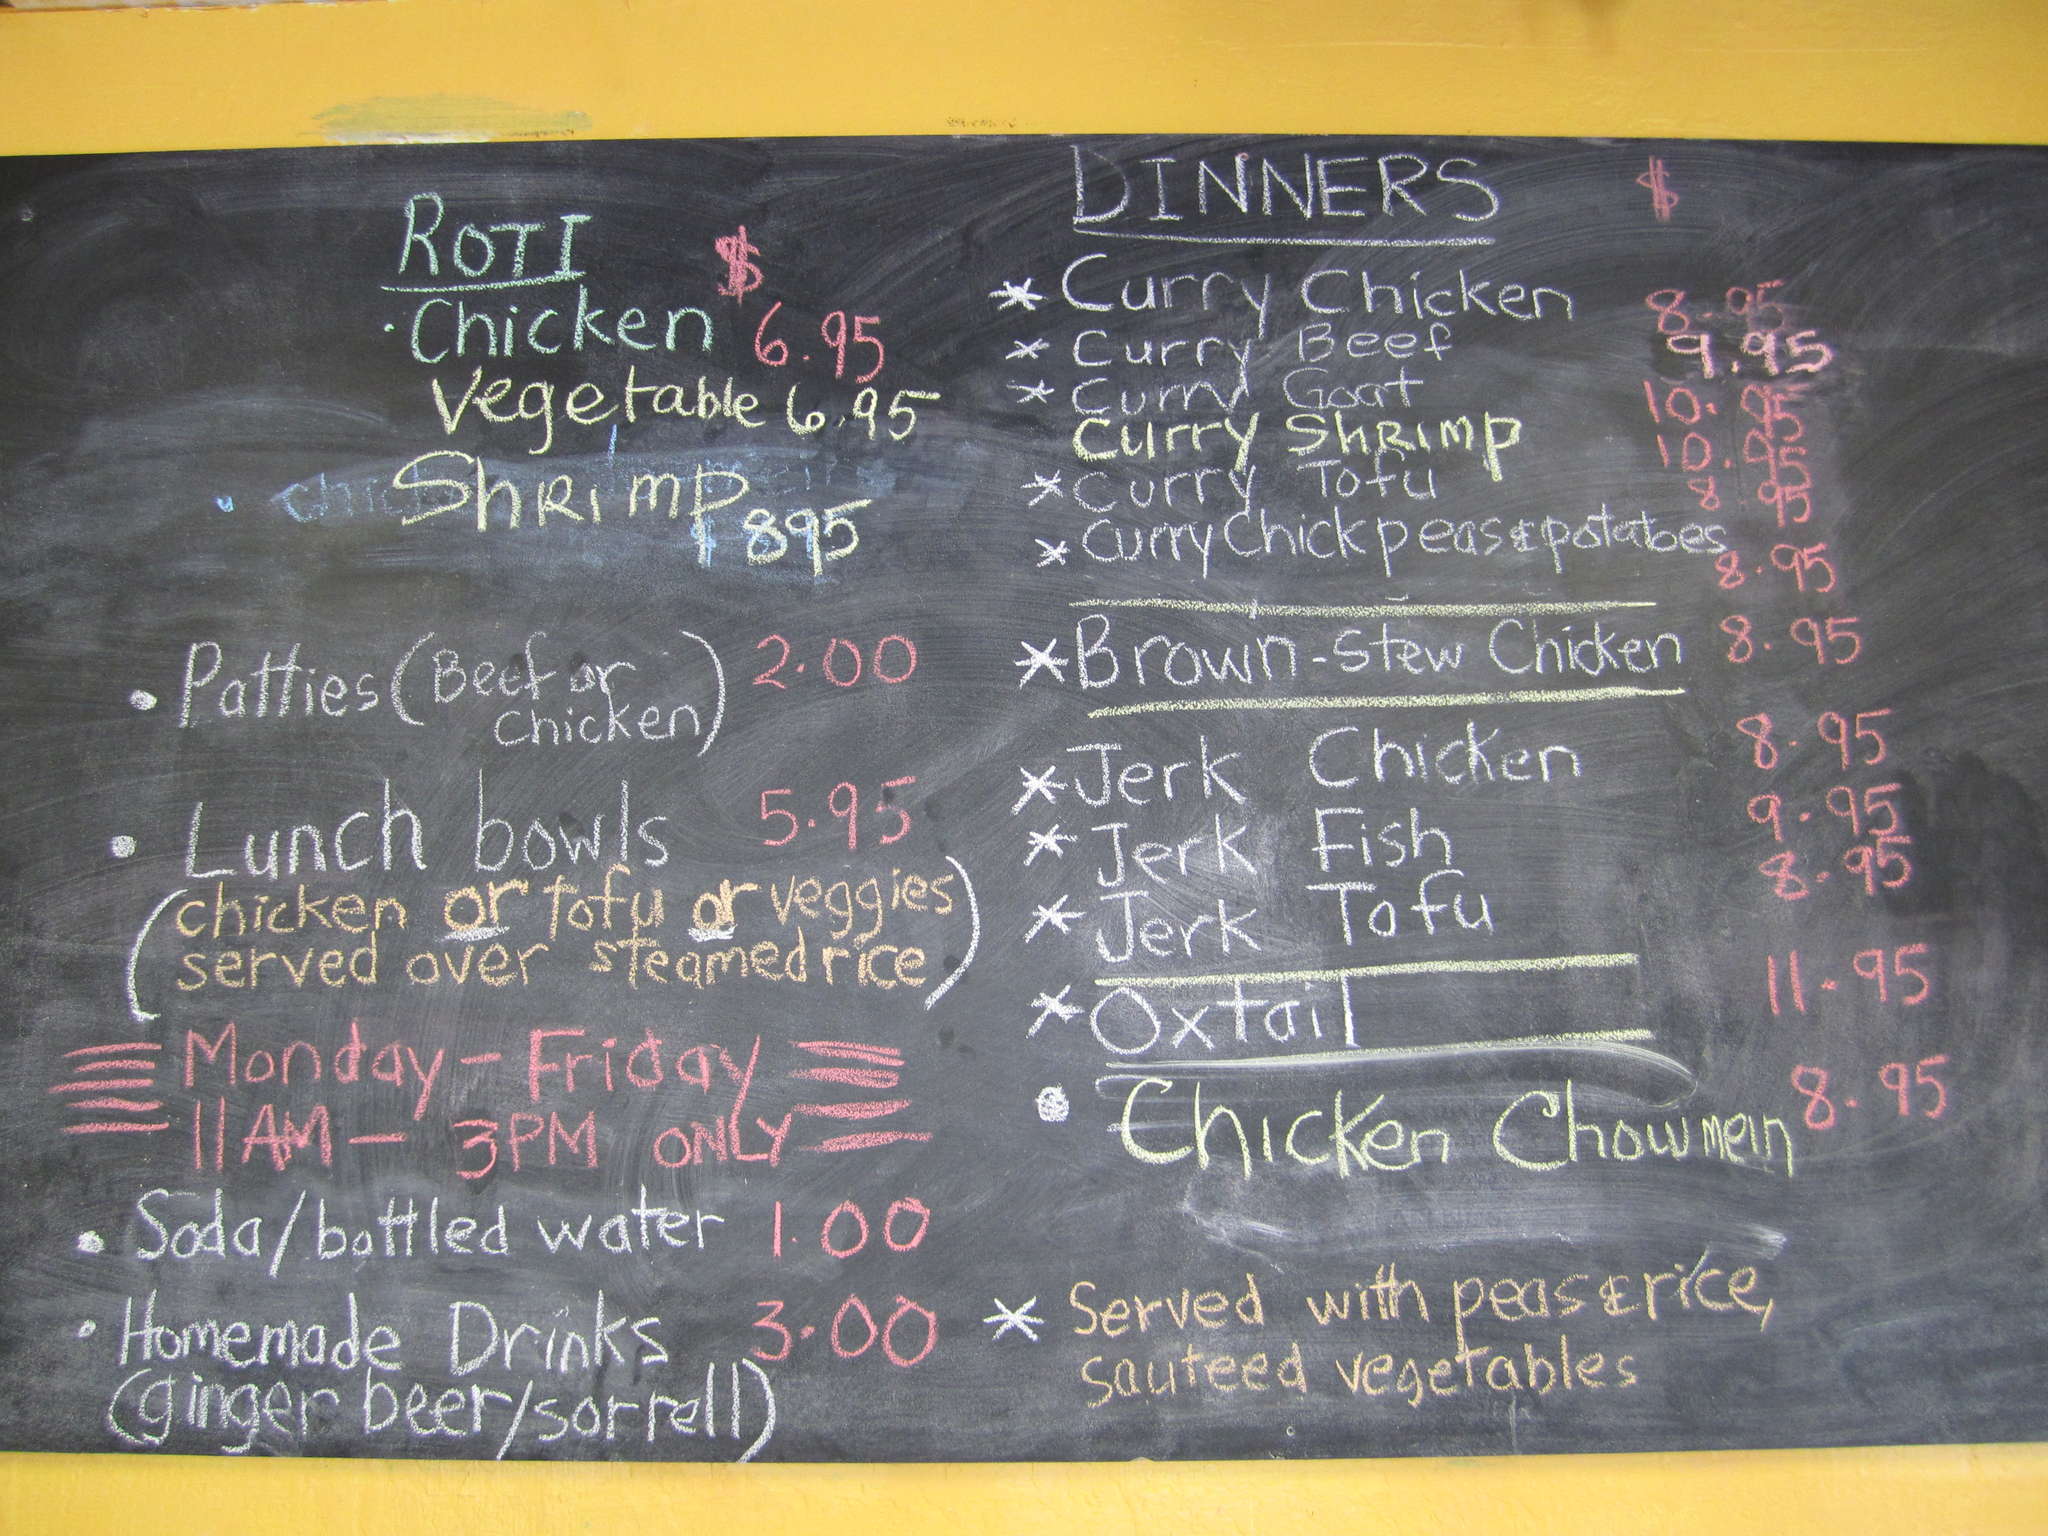 ROTI $
· Chicken 6.95
Vegetable 6.95
· Shrimp 895
• Patties (Beef or Chicken) 2.00
• Lunch bowls 5.95
(chicken or tofu or veggies
served over steamed rice)
Monday - Friday
11AM - 3PM ONLY
• Soda/bottled water 1.00
• Homemade Drinks 3.00
(ginger beer/sorrell)
DINNERS $
* Curry Chicken 8.95
* Curry Beef 9.95
* Curry Goat 10.95
Curry Shrimp 10.95
* Curry Tofu 8.95
* Curry Chick peas & potatoes 8.95
* Brown-Stew Chicken 8.95
* Jerk Chicken 8.95
* Jerk Fish 9.95
* Jerk Tofu 8.95
* Oxtail 11.95
• Chicken Chowmein 8.95
* Served with peas & rice,
sauteed vegetables